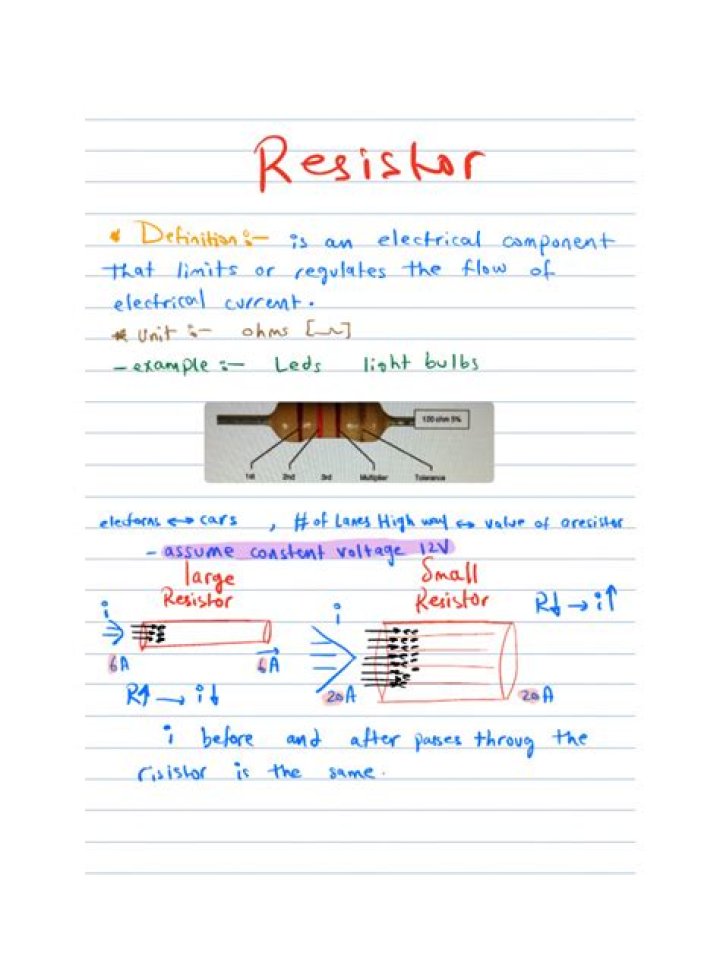 Resistor
* Definition:- is an electrical component
that limits or regulates the flow of
electrical current.
* Unit :- ohms [Ω]
- example :- Leds light bulbs
100 ohm 5%
1st 2nd 3rd Multiplier Tolerance
electorns ↔ cars , # of Lanes High way ↔ value of aresistor
- assume constent voltage 12V
large Small
Resistor Resistor R↓ → i↑
i i
6A 6A
R↑ → i↓ 20A 20A
i before and after passes throug the
risistor is the same.